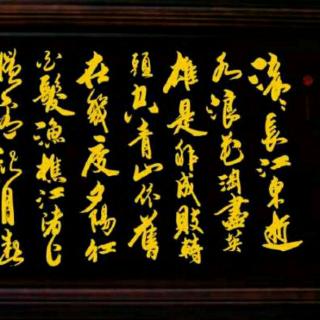 滚〻長江東逝
水浪花淘盡英
雄是非成敗轉
頭空青山依舊
在幾度夕陽红
白髮漁樵江渚上
慣看秋月春